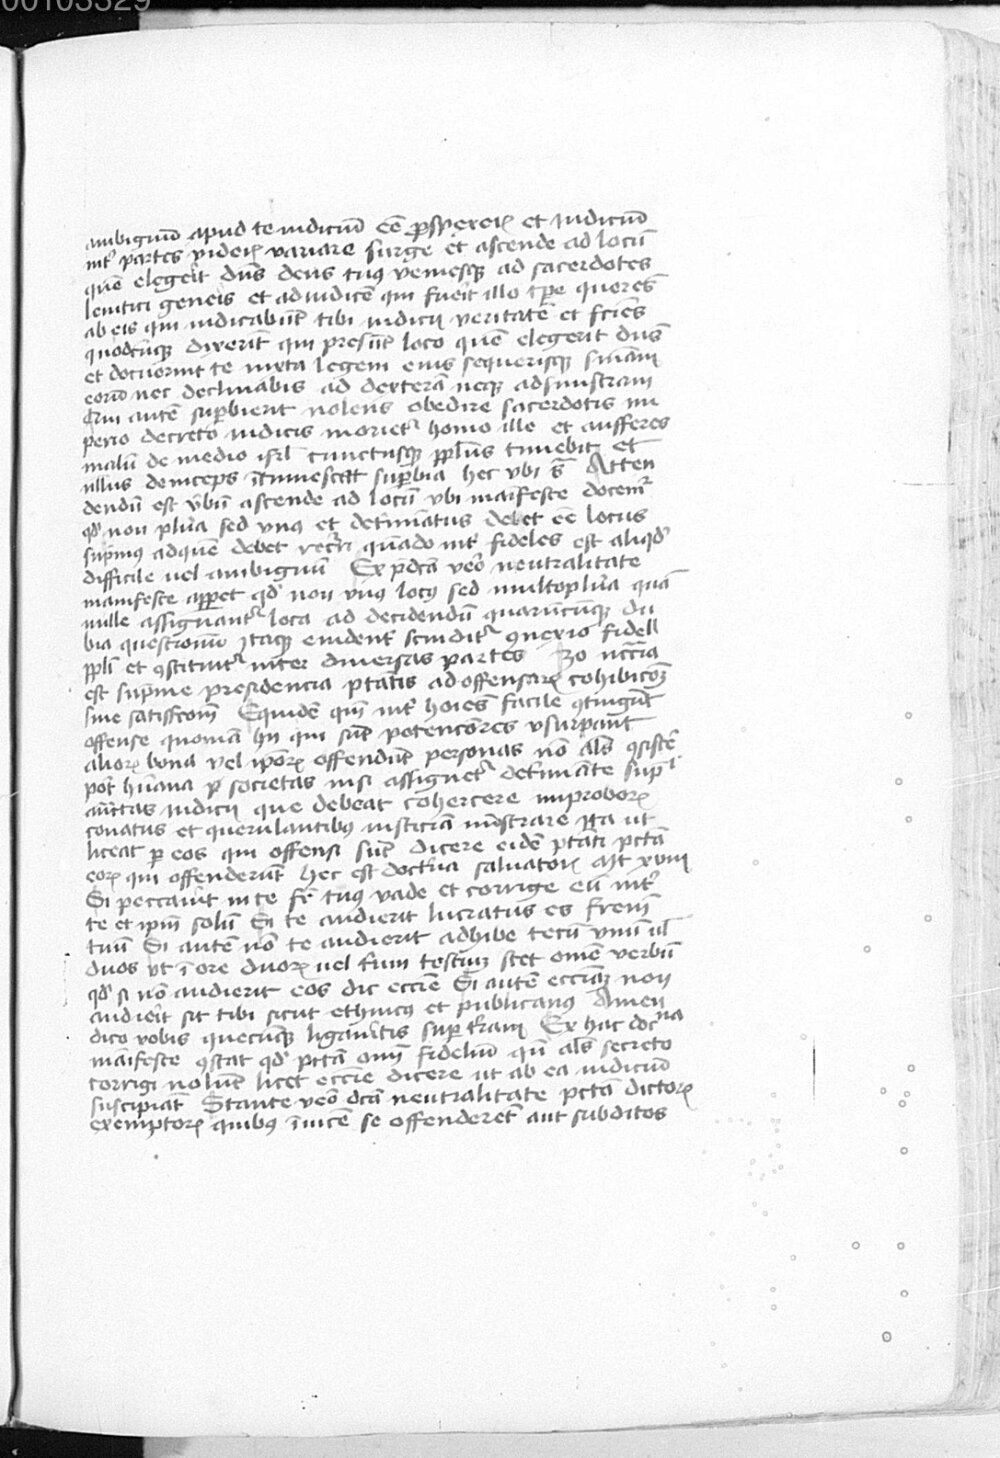 00103329
ambiguū apud te iudiciū eē ꝓspexeris et iudiciū
int͛ partes videris variare surge et ascende ad locū
quē elegerit dn̄s deus tuꝰ veniesqꝫ ad sacerdotes
leuitici gen̄is et ad iudicē qui fuerit illo tp̄e queres
ab eis qui iudicabūt tibi iudicii veritatē et fc̄ies
quodcūqꝫ dixerīt qui presūt loco quē elegerit dn̄s
et docuerīt te iuxta legem eius sequerisqꝫ sn̄iam
eorū nec declinabis ad dexterā neqꝫ ad sinistram
Qui autē suꝑbierit nolens obedire sacerdotis im
perio decreto iudicis moriet͛ homo ille et aufferes
malū de medio isrl̄ cunctusqꝫ pplūs timebit et
nullus deinceps ītumescet suꝑbia hec vbi s̄ Atten
dendū est v̄bū ascende ad locū vbi maīfeste docem͛
qd̛ non plura sed vnꝰ et det͛miatus debet eē locus
supmꝰ ad quē debet qn̄ado int͛ fideles est aliqd̛
difficile uel ambiguū Ex pd̄cā vero neutralitate
manifeste apparet qd̛ non vnꝰ locꝰ sed multo plura quā
mille assignant͛ loca ad decidendū quarūcūqꝫ du
bia questionum Itaqꝫ euident͛ scindit͛ ꝯnexio fidel
ppli et ꝯstituit͛ inter diuersas partes n̄ccīa
est supme presidencia ptātis ad offensarꝝ cohibicōꝫ
siue satisfcōm Equidē qm̄ int͛ hoies facile ꝯtingūt
offense quoniā hii qui sūt potenciores vsurpant
aliorꝝ bona vel ipōrꝝ offendūt personas nō als ꝯsistē
pot͛ hūana societas nisi assignet͛ det͛miate sup
auctas iudicii que debeat cohercere improborꝝ
conatus et querulantibꝰ iusticiā mīstrare Ita ut
liceat ꝑ eos qui offensi sūt dicere eidē ptāti pctā
eorꝝ qui offenderūt hec est doct͛ia saluatoris Mt xviii
Si peccauit in te fr̄ tuꝰ vade et corrige eū int͛
te et ip̄m solū Si te audierit lucratus es frem̄
tuū Si autē nō te audierit adhibe tecū vnū ul̄
duos vt ī ore duorꝝ uel trium testiū stet omē verbū
qd̛ si nō audierit eos dic eccīe Si autē eccīaꝫ non
audierit sit tibi sicut ethnicꝰ et publicanꝰ Amen
dico vobis quecūqꝫ ligauitis suꝑ t̄ram Ex hac doc͛na
manifeste ꝯstat qd̛ pctā om̄ fideliū qn̄ als secreto
corrigi nolunt licet eccīe dicere ut ab ea iudicium
suscipiāt Stante vero dc̄ā neutralitate pctā dictorꝝ
exemptorꝝ quibꝰ īuicē se offenderēt aut subditos